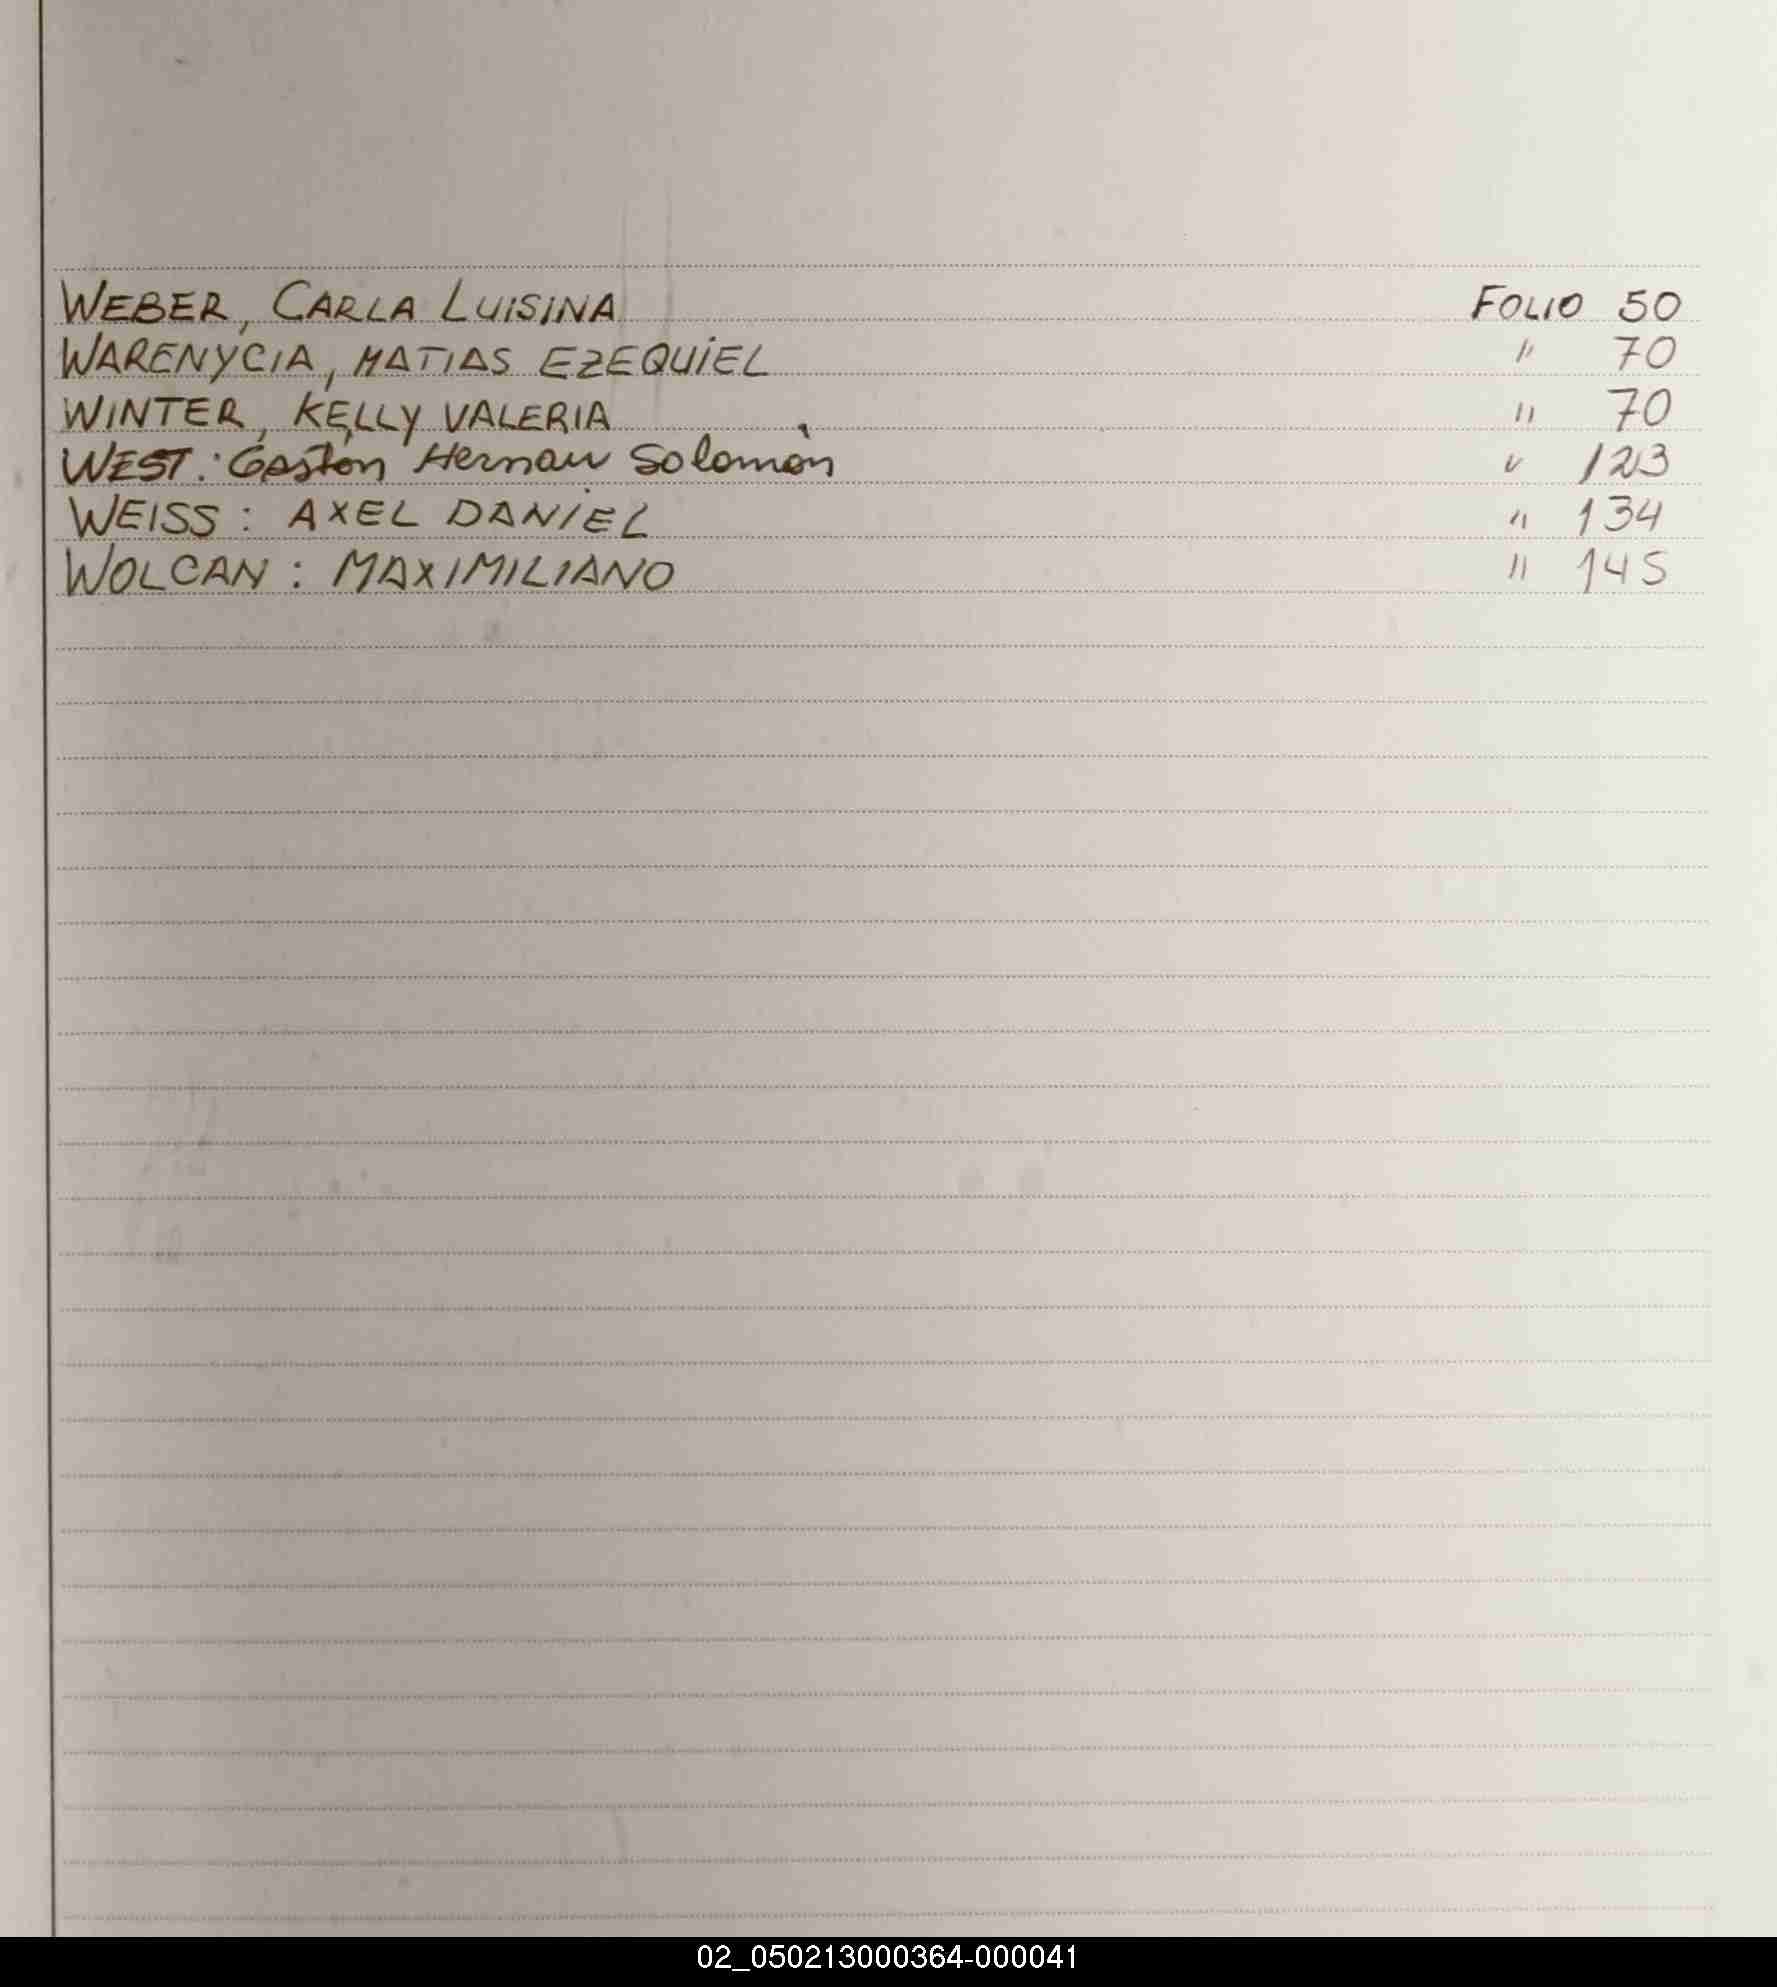 WEBER, CARLA LUISINA FOLIO 50
WARENYCIA, MATIAS EZEQUIEL " 70
WINTER, KELLY VALERIA " 70
WEST: Gaston Hernan Solomon " 123
WEISS: AXEL DANIEL " 134
WOLCAN: MAXIMILIANO " 145
02_050213000364-000041